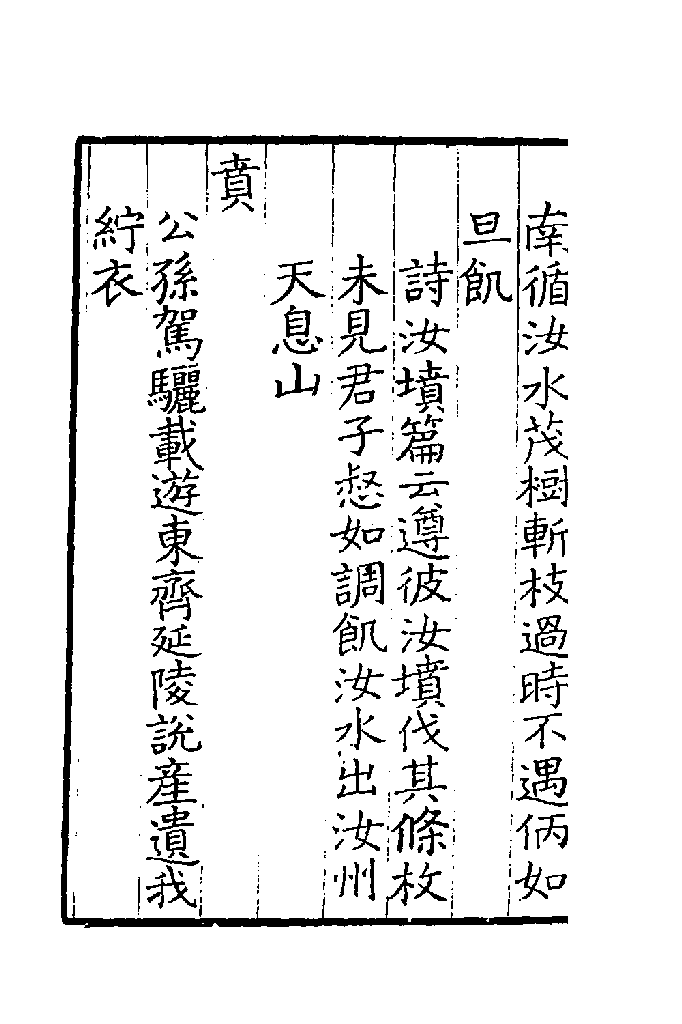 南循汝水茂樹斬枝過時不遇㑂如
旦飢
詩汝墳篇云遵彼汝墳伐其條枚
未見君子惄如調飢汝水出汝州
天息山
賁
公孫駕驪載遊東齊延陵說產遺我
紵衣